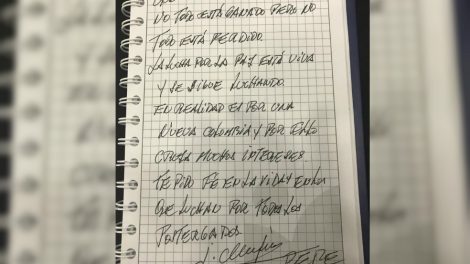 NO TODO ESTÁ GANADO PERO NO
TODO ESTÁ PERDIDO
LA LUCHA POR LA PAZ ESTÁ VIVA
Y SE SIGUE LUCHANDO
EN REALIDAD ES POR UNA
NUEVA COLOMBIA Y POR ELLO
MUCHOS INTERESES
TE PIDO FE EN LA VIDA Y EN LOS
QUE LUCHAN POR TODOS LOS
POSTERGADOS
PEPE